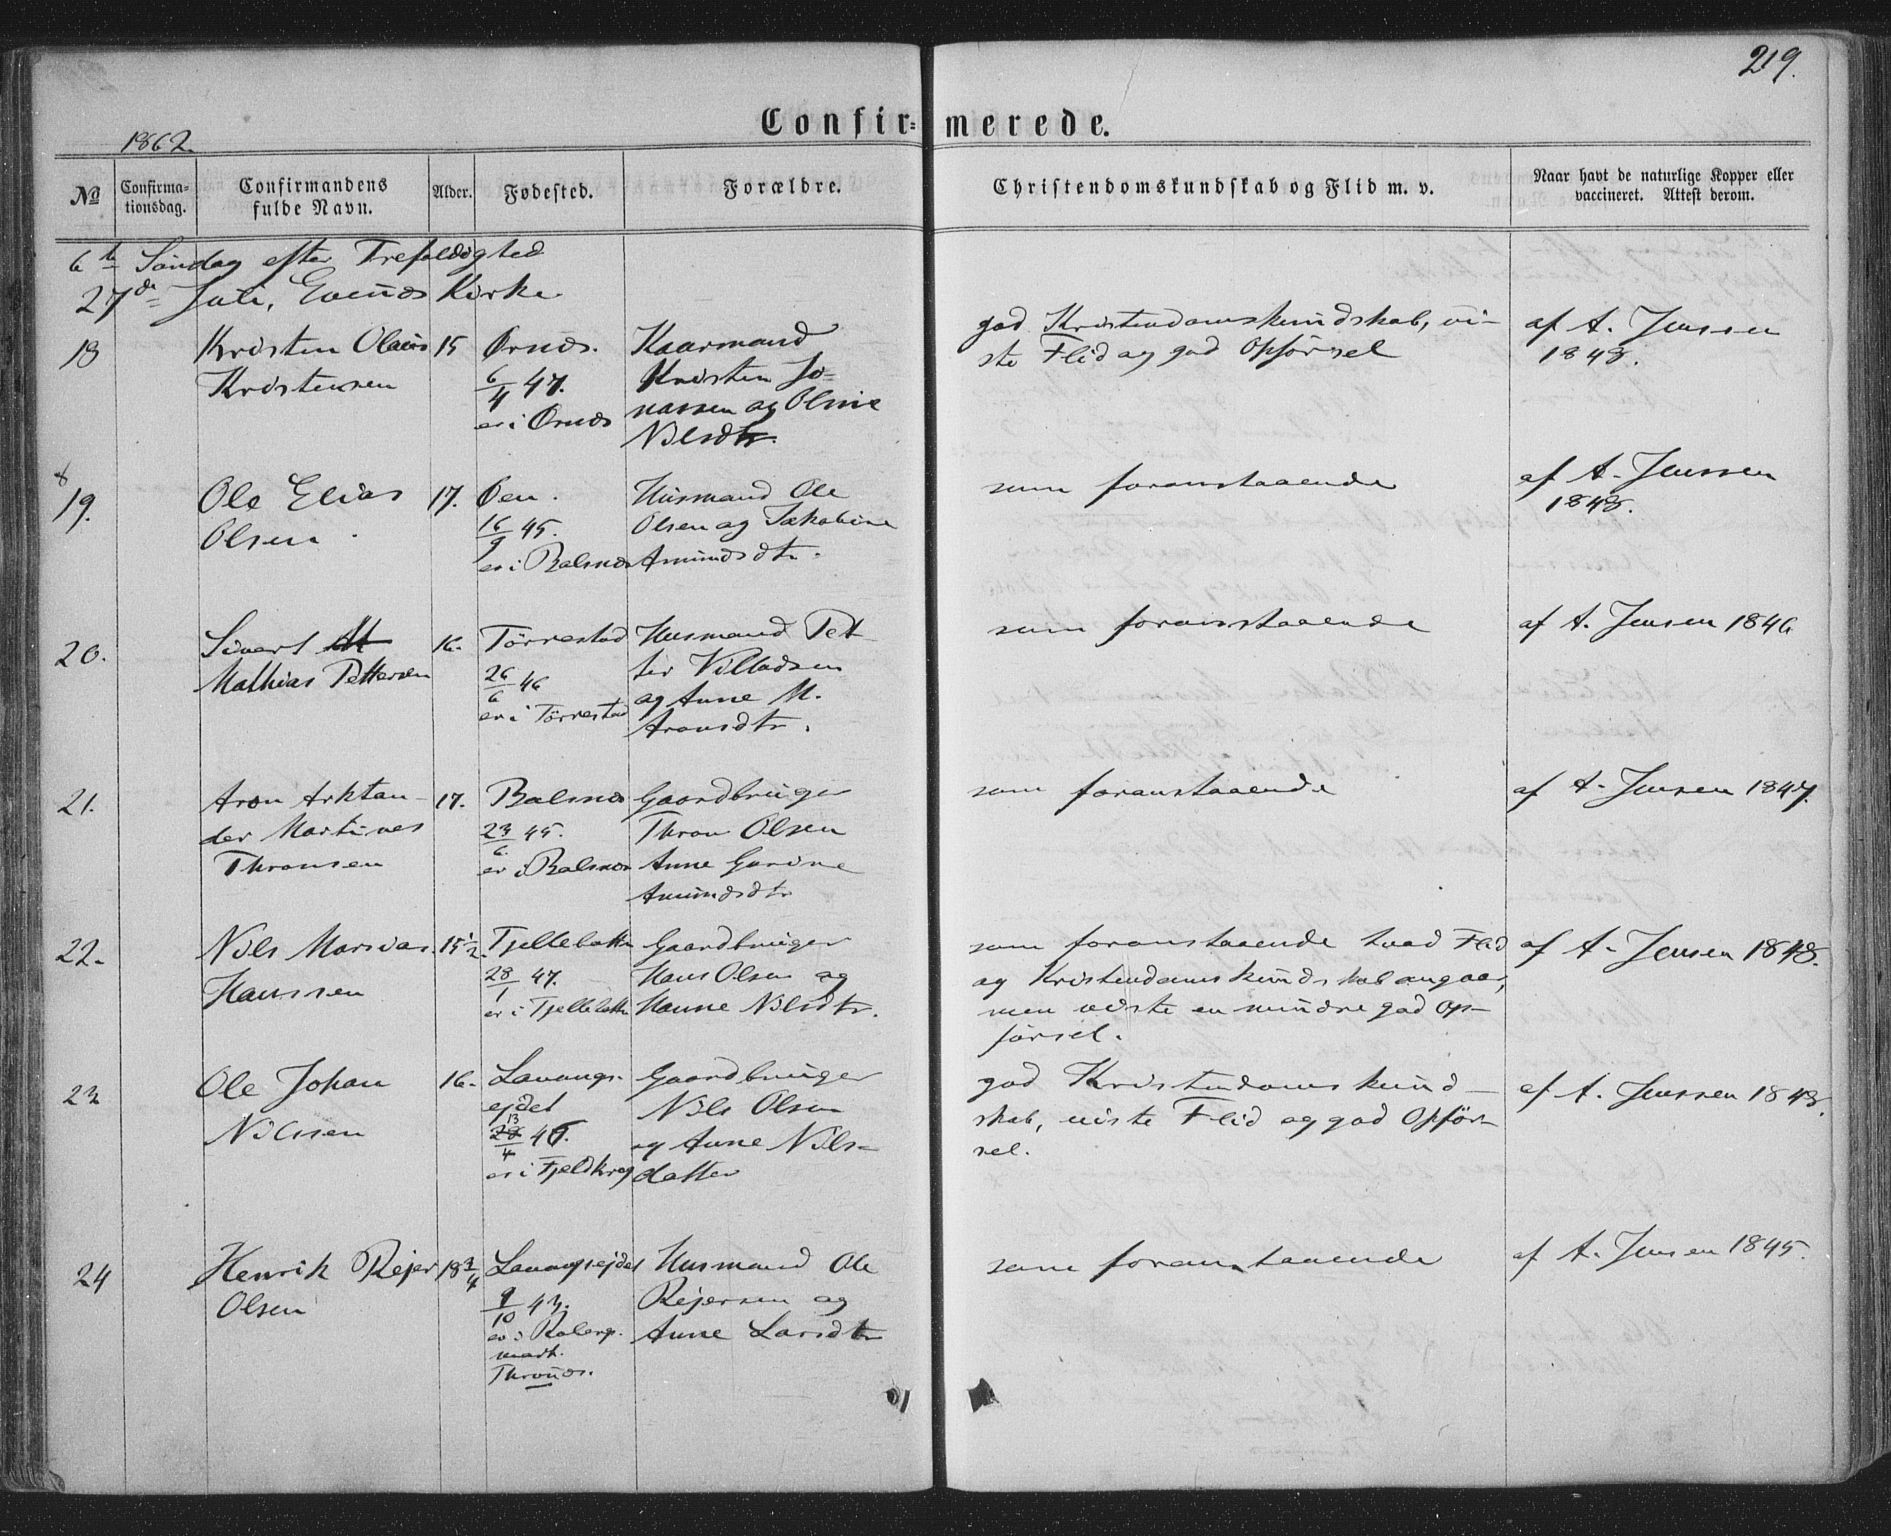 219.
Confirmerede.
1862.
No
Confirmationsdag.
Confirmandens fulde Navn.
Alder.
Fødested.
Forældre.
Christendomskundskab og Flid m. v.
Naar havt de naturlige Kopper eller vaccineret. Attest derom.
6te Søndag efter Trefoldighed
27de Juli, Evenæs Kirke.
18
Kristen Olaus
Kristensen
15
Ørnæs.
6/4 47.
er i Ørnæs
Kaarmand
Kristen Jo-
nassen og Oline
Nilsdtr.
god Kristendomskundskab, vi-
ste Flid og god Opførsel
af A. Jenssen
1848.
19.
Ole Elias
Olsen.
17.
Øen.
16/9 45.
er i Balsnæs
Husmand Ole
Olsen og Jakobine
Amundsdtr.
som foranstaaende
af A. Jenssen
1848.
20.
Sivert
Mathias Pettersen
16.
Tørrestad
26/6 46
er i Tørrestad
Husmand Pet-
ter Villadsen
og Anne M.
Aronsdtr.
som foranstaaende
af A. Jensen 1846
21.
Aron Arktan-
der Martines
Thronsen
17.
Balsnæs
23/6 45.
er i Balsnæs
Gaardbruger
Thron Olsen
Anne Gurine
Amundsdtr
som foranstaaende
af A. Jensen 1847.
22.
Nils Marsias
Hanssen
15 1/2.
Tjellebotn
28/1 47.
er i Tjellebotn
Gaardbruger
Hans Olsen og
Hanne Nilsdtr.
som foranstaaende hvad Flid
og Kristendomskundskab angaar,
men viste en mindre god Op-
førsel.
af A. Jensen 1848.
23
Ole Johan
Nilssen
16.
Lavangs-
ejdet
13/4 46.
er i Fjeldkrog
Gaardbruger
Nils Olsen
og Anne Nils-
datter
god Kristendomskund-
skab, viste Flid og god Opfør-
sel.
af A. Jenssen 1848.
24
Henrik Rejer
Olsen
18 3/4
Lavangsejdet
9/10 43.
er i
Thronæs.
Husmand Ole
Rejersen og
Anne Larsdtr
som foranstaaende
af A. Jensen 1845.